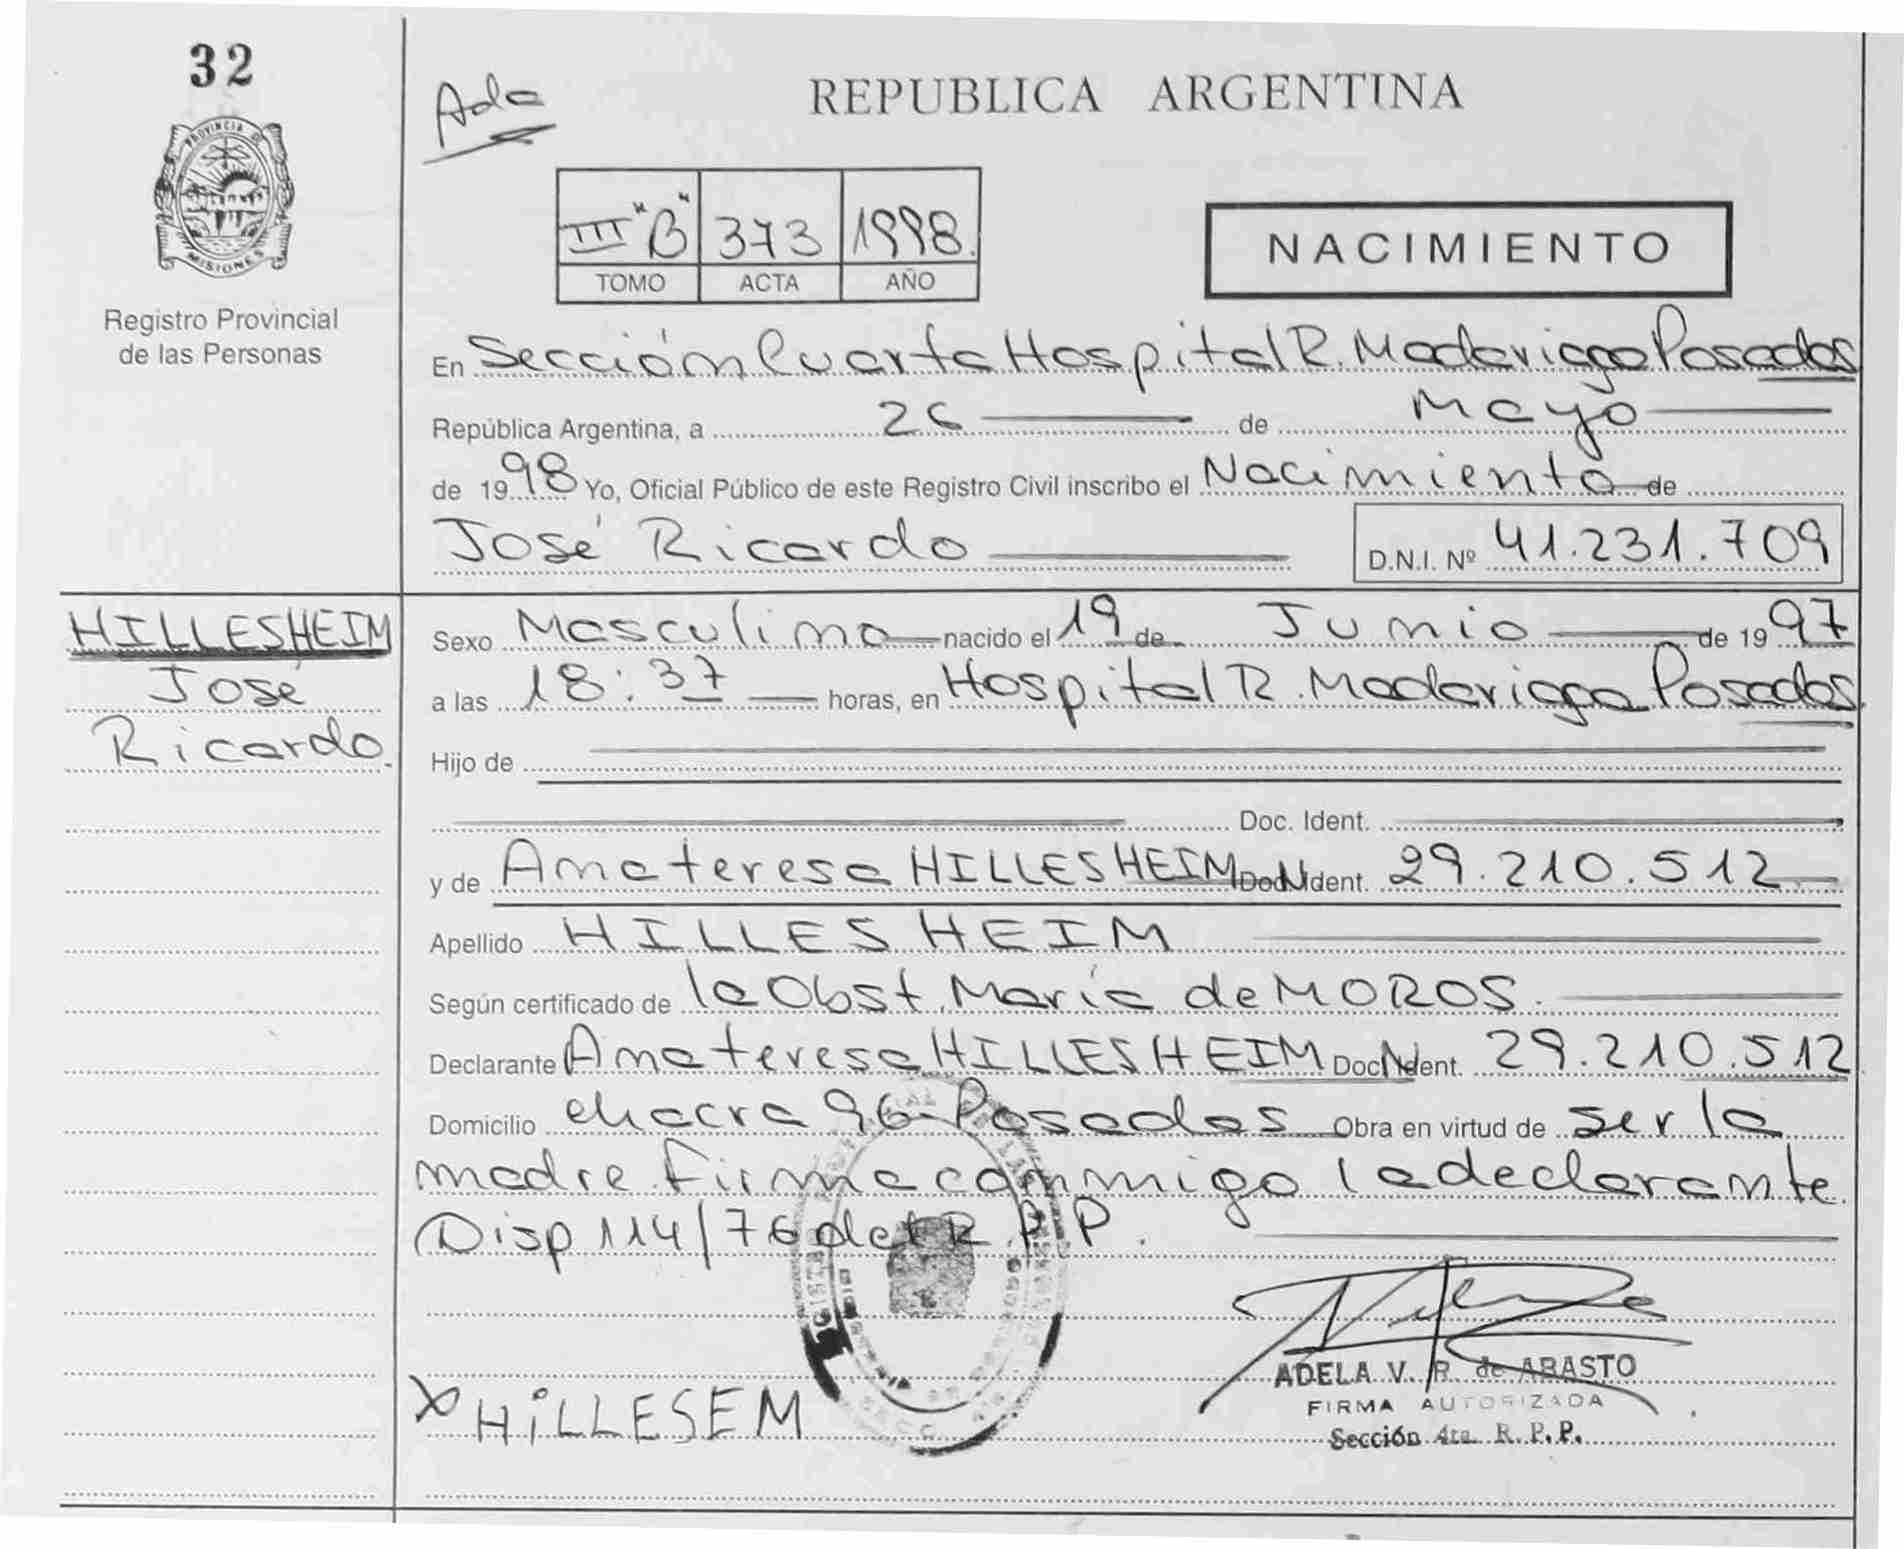 32
Ada
REPUBLICA ARGENTINA
PROVINCIA DE
MISIONES
Registro Provincial
de las Personas
III "B" 373 1998.
TOMO ACTA AÑO
NACIMIENTO
En Sección Cuarta Hospital R. Madariaga Posadas
República Argentina, a 26 de Mayo
de 1998 Yo, Oficial Público de este Registro Civil inscribo el Nacimiento de
José Ricardo D.N.I. Nº 41.231.709
HILLESHEIM
José
Ricardo.
Sexo Masculino nacido el 19 de Junio de 1997
a las 18:37 horas, en Hospital R. Madariaga Posadas
Hijo de
Doc. Ident.
y de Ana teresa HILLESHEIM Doc. Ident. 29.210.512
Apellido HILLESHEIM
Según certificado de la Obst. María de MOROS.
Declarante Ana teresa HILLESHEIM Doc. Ident. 29.210.512
Domicilio chacra 96-Posadas Obra en virtud de ser la
madre firma conmigo la declarante
Disp 114/76 del R.P.P.
X HiLLESEM
ADELA V. R. de ABASTO
FIRMA AUTORIZADA
Sección 4ta. R. P. P.